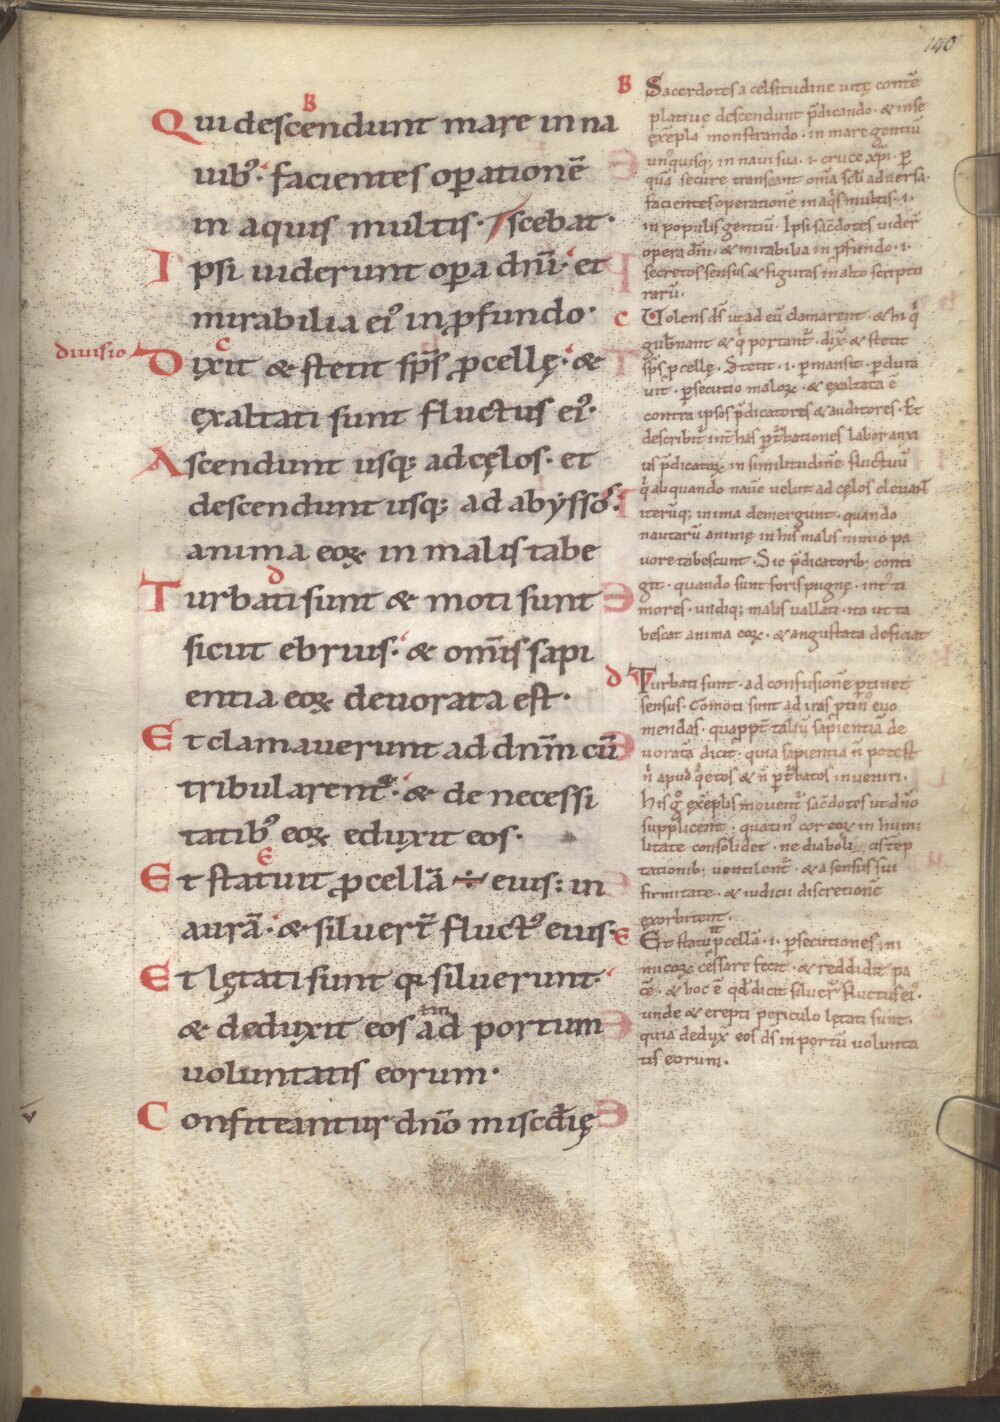 140
B
Qui descendunt mare in na
uib᷒· facientes op̱ationē
in aquis multis· /scebat·
Ipsi uiderunt op̱a dn̄i· et
mirabilia ei᷒ in ꝓfundo·
divisio
c
Dixit & stetit sp̄s ꝓcellę· &
exaltati sunt fluctus ei᷒·
Ascendunt usq; ad cęlos· et
descendunt usq; ad abyssos:
anima eoꝝ in malis tabe
d
Turbati sunt & moti sunt
sicut ebrius· & om̄is sapi
entia eoꝝ deuorata est·
Et clamauerunt ad dn̄m cū
tribularent᷒· & de necessi
tatib᷒ eoꝝ eduxit eos·
E
Et statuit ꝓcellā ÷ eius: in
aurā· & siluer̄t fluct᷒ eius·
Et lętati sunt qꝛ siluerunt·
& deduxit eos ad portum
uoluntatis eorum·
Confiteantur dn̄o misc̄dię
B Sacerdotes a celsitudine uitę contē
platiuę descendunt p̄dicando· & in se
exēpla monstrando· in mare gentiū
un᷒quisq; in naui sua· i· cruce xp̄i· ꝑ
quā secure transeant om̄a scl̄i aduersa·
facientes operationē in aq̇s multis· i·
in populis gentiū· Ipsi sac̄dotes uider̄
opera dn̄i· & mirabilia in ꝓfundo· i·
secretos sensus & figuras in alto scriptu
rarū·
c Uolens ds̄ ut ad eū clamarent· & hi q̇
gub̄nant & q̇ portant᷒· dix̄ & stetit
sp̄s ꝓcellę· Stetit· i· ꝑmansit· ꝑdura
uit· ꝑsecutio maloꝝ· & exaltata ē
contra ipsos p̄dicatores & auditores· Et
describit᷒ int̄ has ꝑt̄bationes labor anxi
us p̄dicatoꝝ in similitudinē fluctuū
q̇ aliquando nauē uelut ad cęlos eleuant
iterūq; in ima demergunt· quando
nautarū animę in his malis nimio pa
uore tabescunt· Sic p̄dicatorib; conti
git· quando sunt foris pugnę· int᷒ ti
mores· undiq; malis uallati· ita ut ta
bescat anima eoꝝ· & angustata deficiat
d Turbati sunt· ad confusionē ꝑtinet
sensus· Cōmoti sunt ad iras ꝑtin᷒ euo
mendas· quapp̄t taliū sapientiā de
uoratā dicit· quia sapientia n̄ potest
n̄ apud q̇etos & n̄ ꝑt̄batos inueniri·
His g̊ exēplis mouent᷒ sac̄dotes ut dn̄o
supplicent· quatin᷒ cor eoꝝ in humi
litate consolidet· ne diaboli tēp
tationib; uentilent᷒· & a sensus sui
firmitate· & iudicii discretionē
exorbitent·
E Et statuit ꝓcellā· i· ꝑsecutiones ini
micoꝝ cessare fecit· & reddidit pa
cē· & hoc ē qd̄ dicit siluer̄ fluctus ei᷒·
unde & erepti periculo lętati sunt·
quia dedux̄ eos ds̄ in portū uolunta
tis eorum·